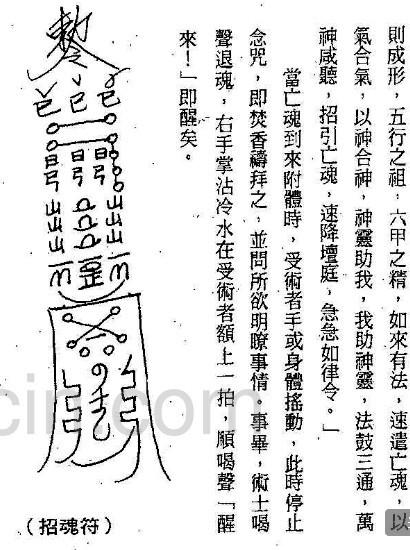 則成形，五行之祖，六甲之精，如來有法，速遣亡魂，以
氣合氣，以神合神，神靈助我，我助神靈，法鼓三通，萬
神咸聽，招引亡魂，速降壇庭，急急如律令。」
當亡魂到來附體時，受術者手或身體搖動，此時停止
念咒，即焚香禱拜之，並問所欲明瞭事情。事畢，術士喝
聲退魂，右手掌沾冷水在受術者額上一拍，順喝聲「醒
來！」即醒矣。
（招魂符）
cin.com